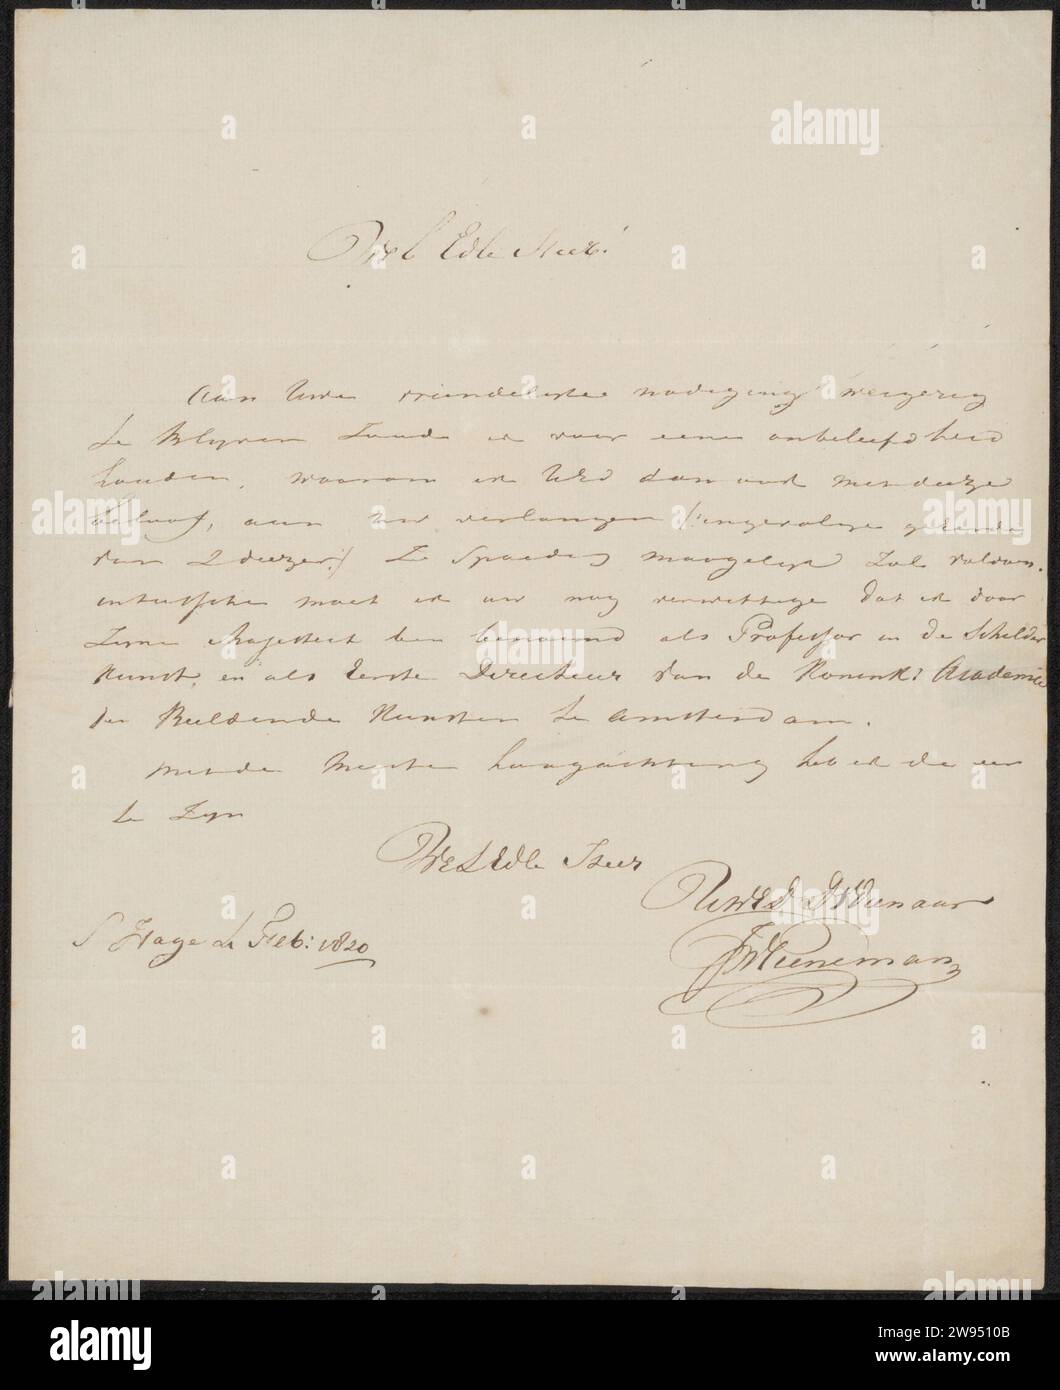 Wel Edle Heer!
Aan Uwe vriendelyke nodiging weigerig
te Blyven Zoude ik voor eene onbeleefdheid
houden, waarom ik UEd dan ook mendeeze
beloof, aan uw verlangen /:ingevolge
van 2 deezer:/ Zo Spoedig moogelyk Zal voldoen.
intusschen moet ik uw nog verwittige dat ik door
Zyne Majesteit ben benoemd als Professor in de Schilder
Kunst, en als Eerste Directeur van de Koninkl: Academie
der Beeldende Kunsten te Amsterdam.
Met de Meeste hoogachting heb ik de eer
te Zyn
WelEdle Heer
UwEd Dienaar
S' Hage de Feb: 1820
JWPieneman
alamy
Image ID: 2W9510B
www.alamy.com